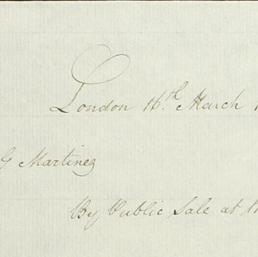 London 16th March
G Martinez
By Public Sale at